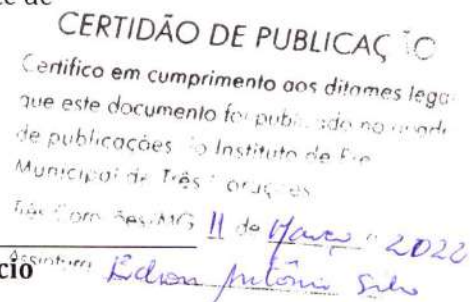 de
CERTIDÃO DE PUBLICAÇ O
Certifico em cumprimento aos ditames lega
que este documento foi publicado no quadr
de publicações do Instituto de
Municipal de Três Corações
Três Corações/MG 11 de Março 2022
cio Assinatura Edson Antônio Silva